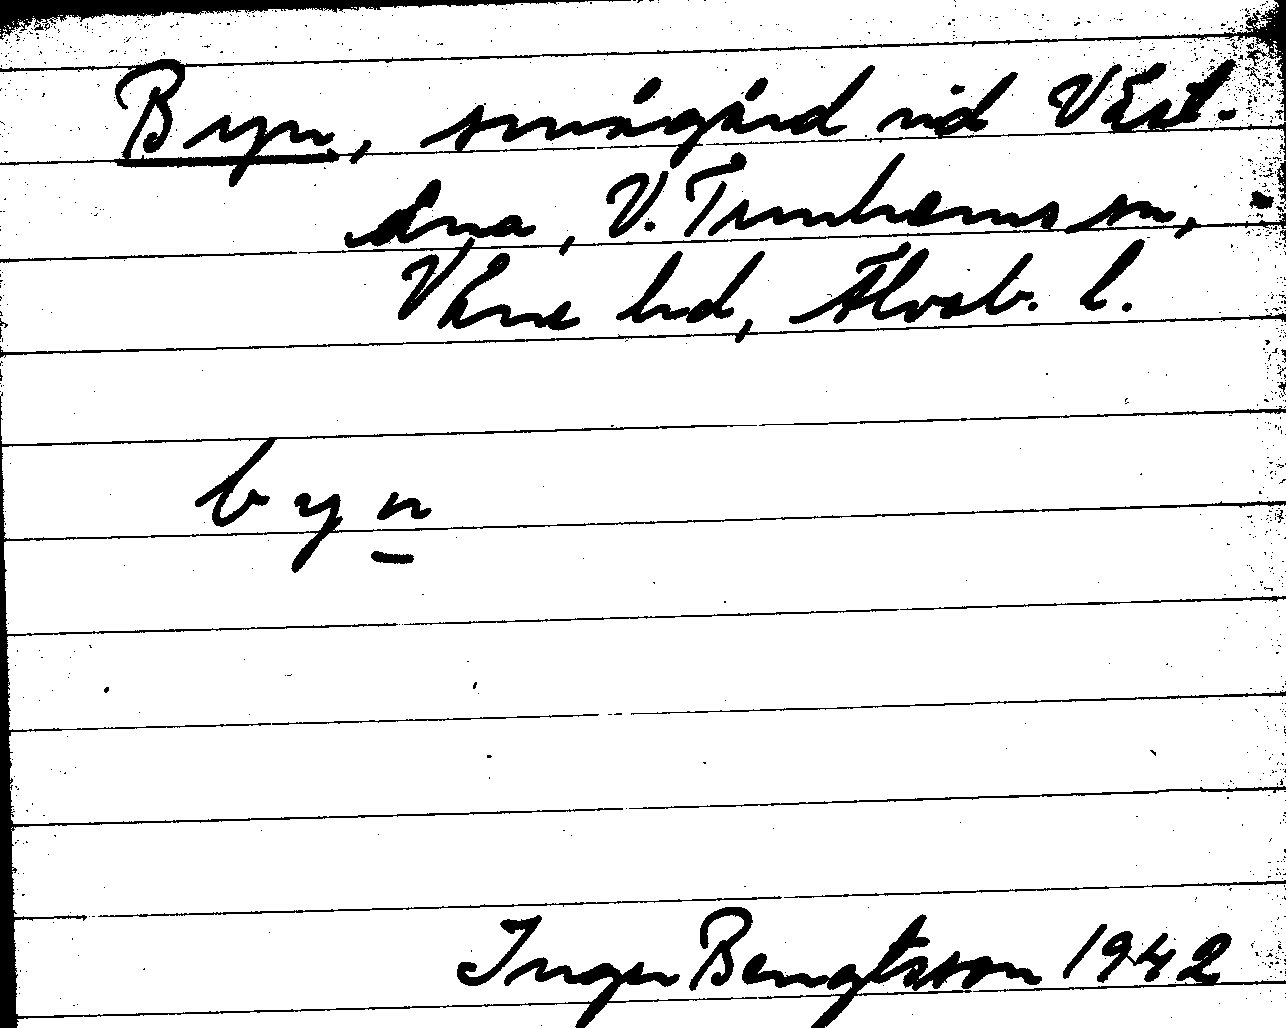 Byn, smågård vid Väst-
äna, V. Tunhems sn,
Väne hd, Älvsb. l.
byn
Inger Bengtsson 1942